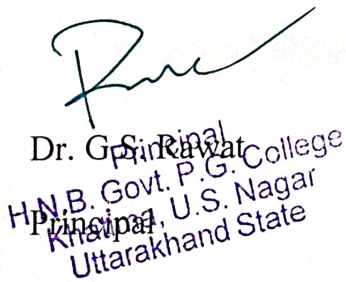 Dr. G.S. Rawat
Principal
Principal
H.N.B. Govt. P.G. College
Khatima, U.S. Nagar
Uttarakhand State